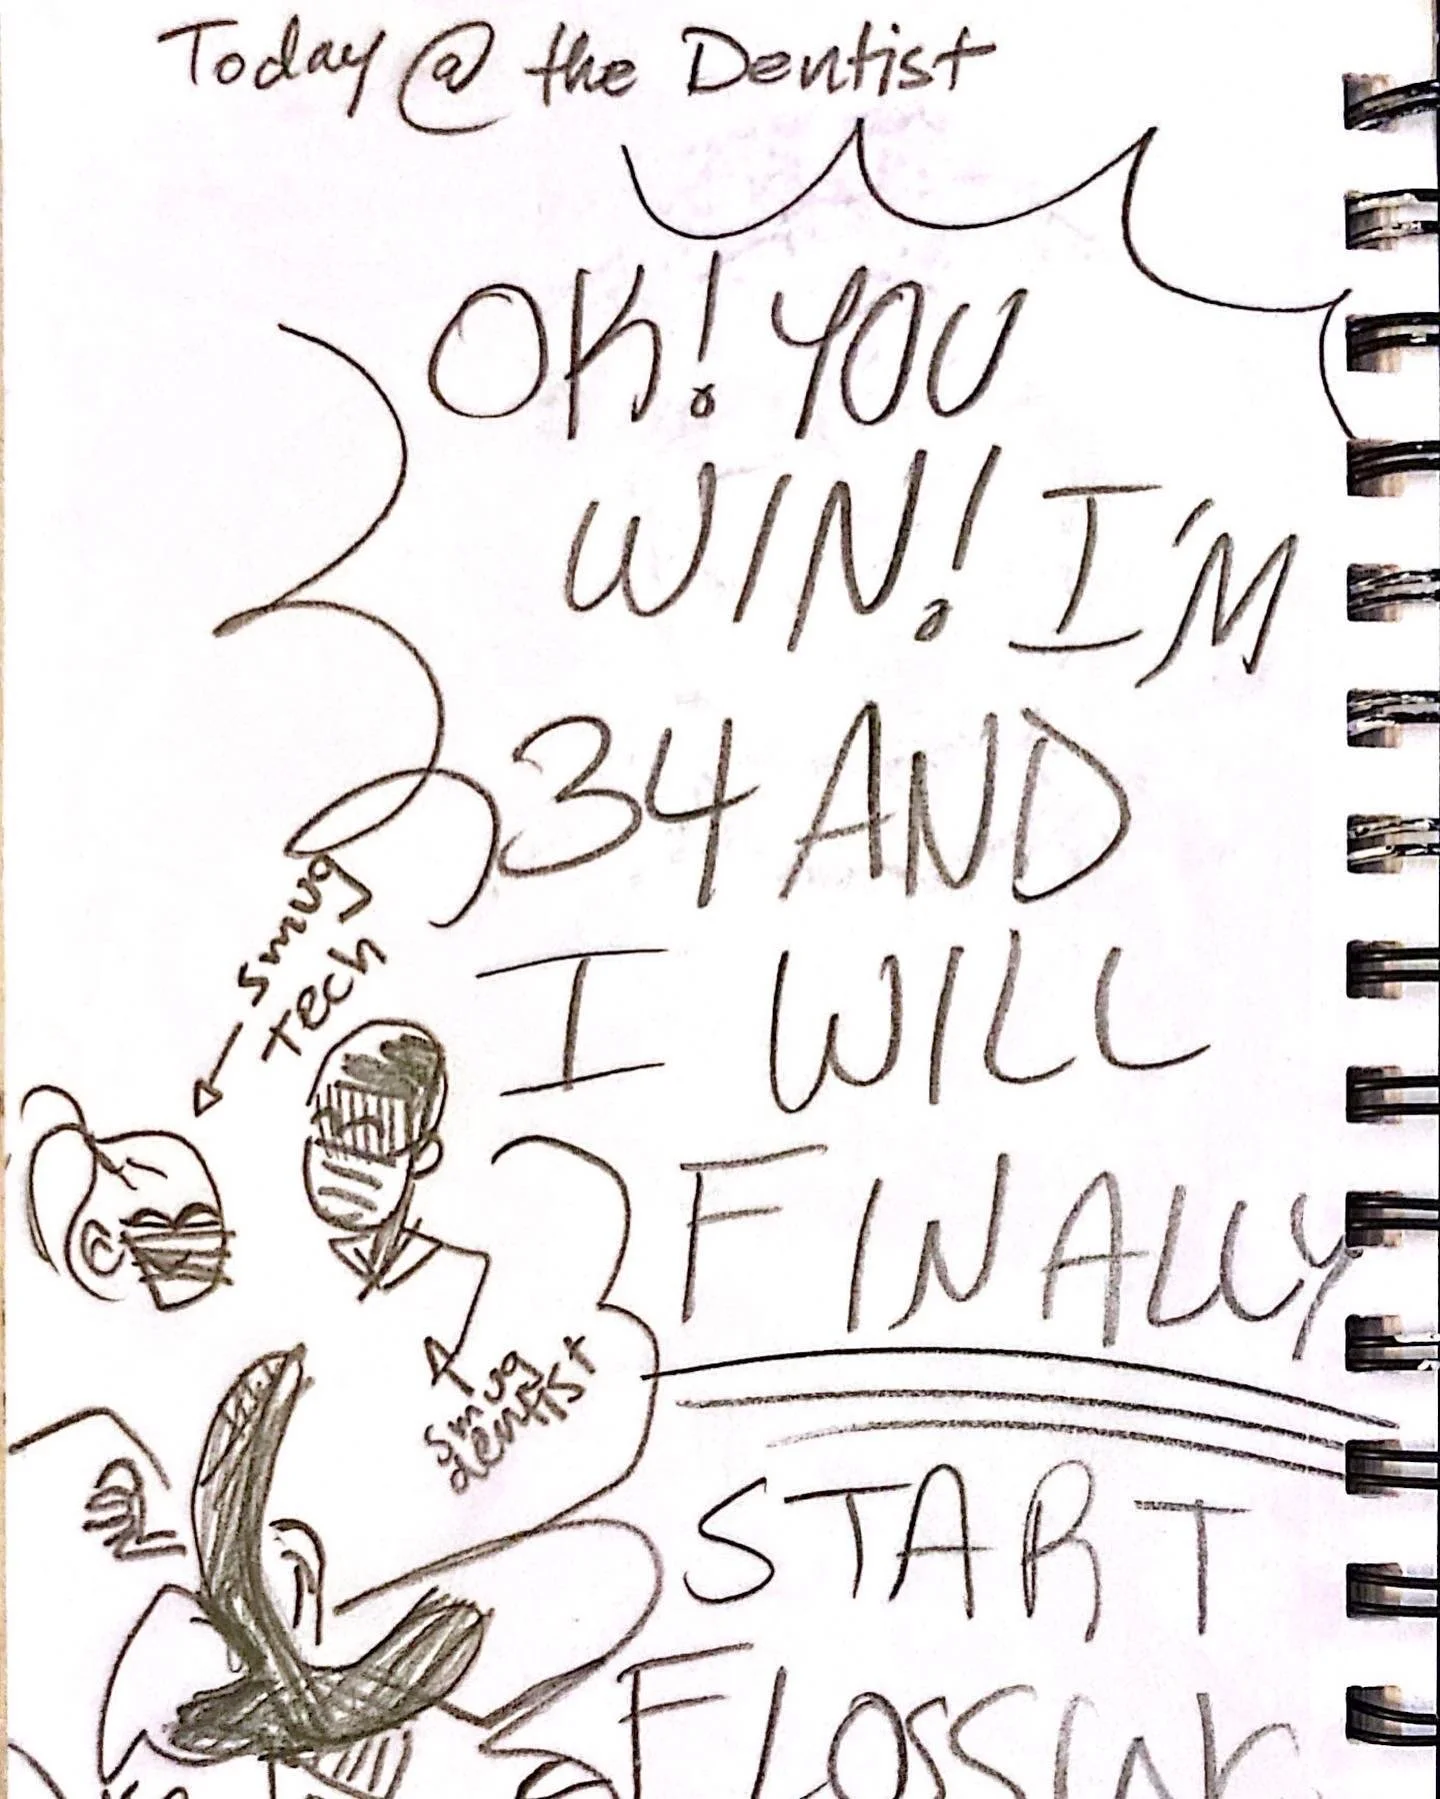 Today @ the Dentist
OK! YOU
WIN! I'M
34 AND
I WILL
FINALLY
START
FLOSSING
smug
tech
smug
dentist